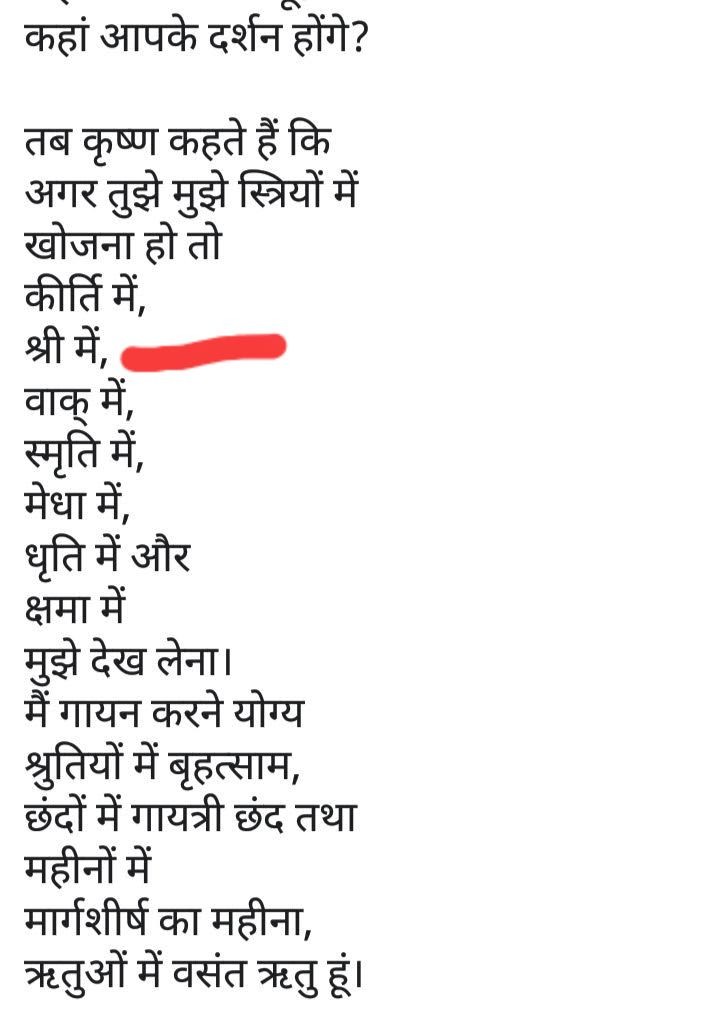 कहां आपके दर्शन होंगे?
तब कृष्ण कहते हैं कि
अगर तुझे मुझे स्त्रियों में
खोजना हो तो
कीर्ति में,
श्री में,
वाक् में,
स्मृति में,
मेधा में,
धृति में और
क्षमा में
मुझे देख लेना।
मैं गायन करने योग्य
श्रुतियों में बृहत्साम,
छंदों में गायत्री छंद तथा
महीनों में
मार्गशीर्ष का महीना,
ऋतुओं में वसंत ऋतु हूं।